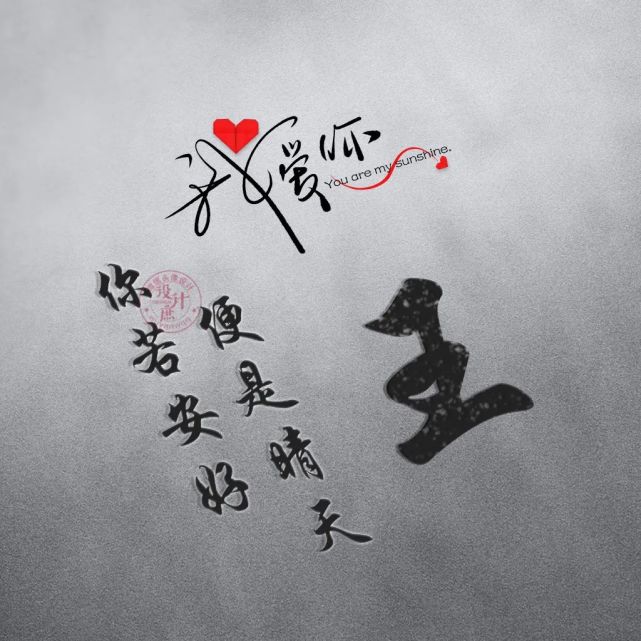 我爱你
You are my sunshine.
你若安好
便是晴天
王
设计